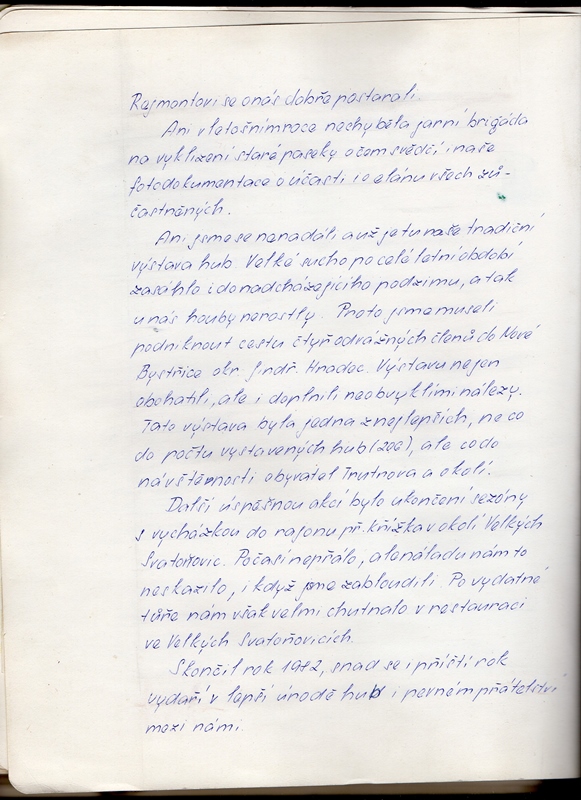 Rajmontovi se o nás dobře postarali.
Ani v letošním roce nechyběla jarní brigáda
na vyklizení staré paseky o čem svědčí i naše
fotodokumentace o účasti i o elánu všech zú-
častněných.
Ani jsme se nenadáli a už je tu naše tradiční
výstava hub. Velké sucho po celé letní období
zasáhlo i do nadcházejícího podzimu, a tak
u nás houby nerostly. Proto jsme museli
podniknout cestu čtyř odvážných členů do Nové
Bystřice okr. Jindř. Hradec. Výstavu nejen
obohatili, ale i doplnili neobvyklími nálezy.
Tato výstava byla jedna z nejlepších, ne co
do počtu vystavených hub (206), ale co do
návštěvnosti obyvatel Trutnova a okolí.
Další úspěšnou akcí bylo ukončení sezóny
s vycházkou do rajonu př. Křížka v okolí Velkých
Svatoňovic. Počasí nepřálo, ale náladu nám to
neskazilo, i když jsme zabloudili. Po vydatné
túře nám však velmi chutnalo v restauraci
ve Velkých Svatoňovicích.
Skončil rok 1982, snad se i příští rok
vydaří v lepší úrodě hub i pevném přátelství
mezi námi.